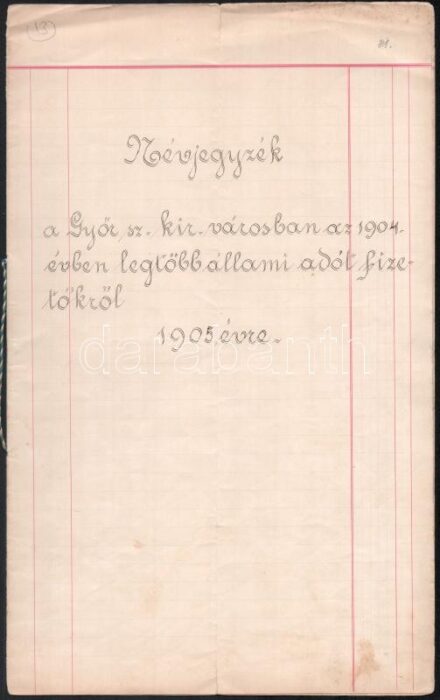 13
Névjegyzék
a Győr sz. kir. városban az 1904.
évben legtöbb állami adót fize-
tőkről
1905 évre.
darabanth